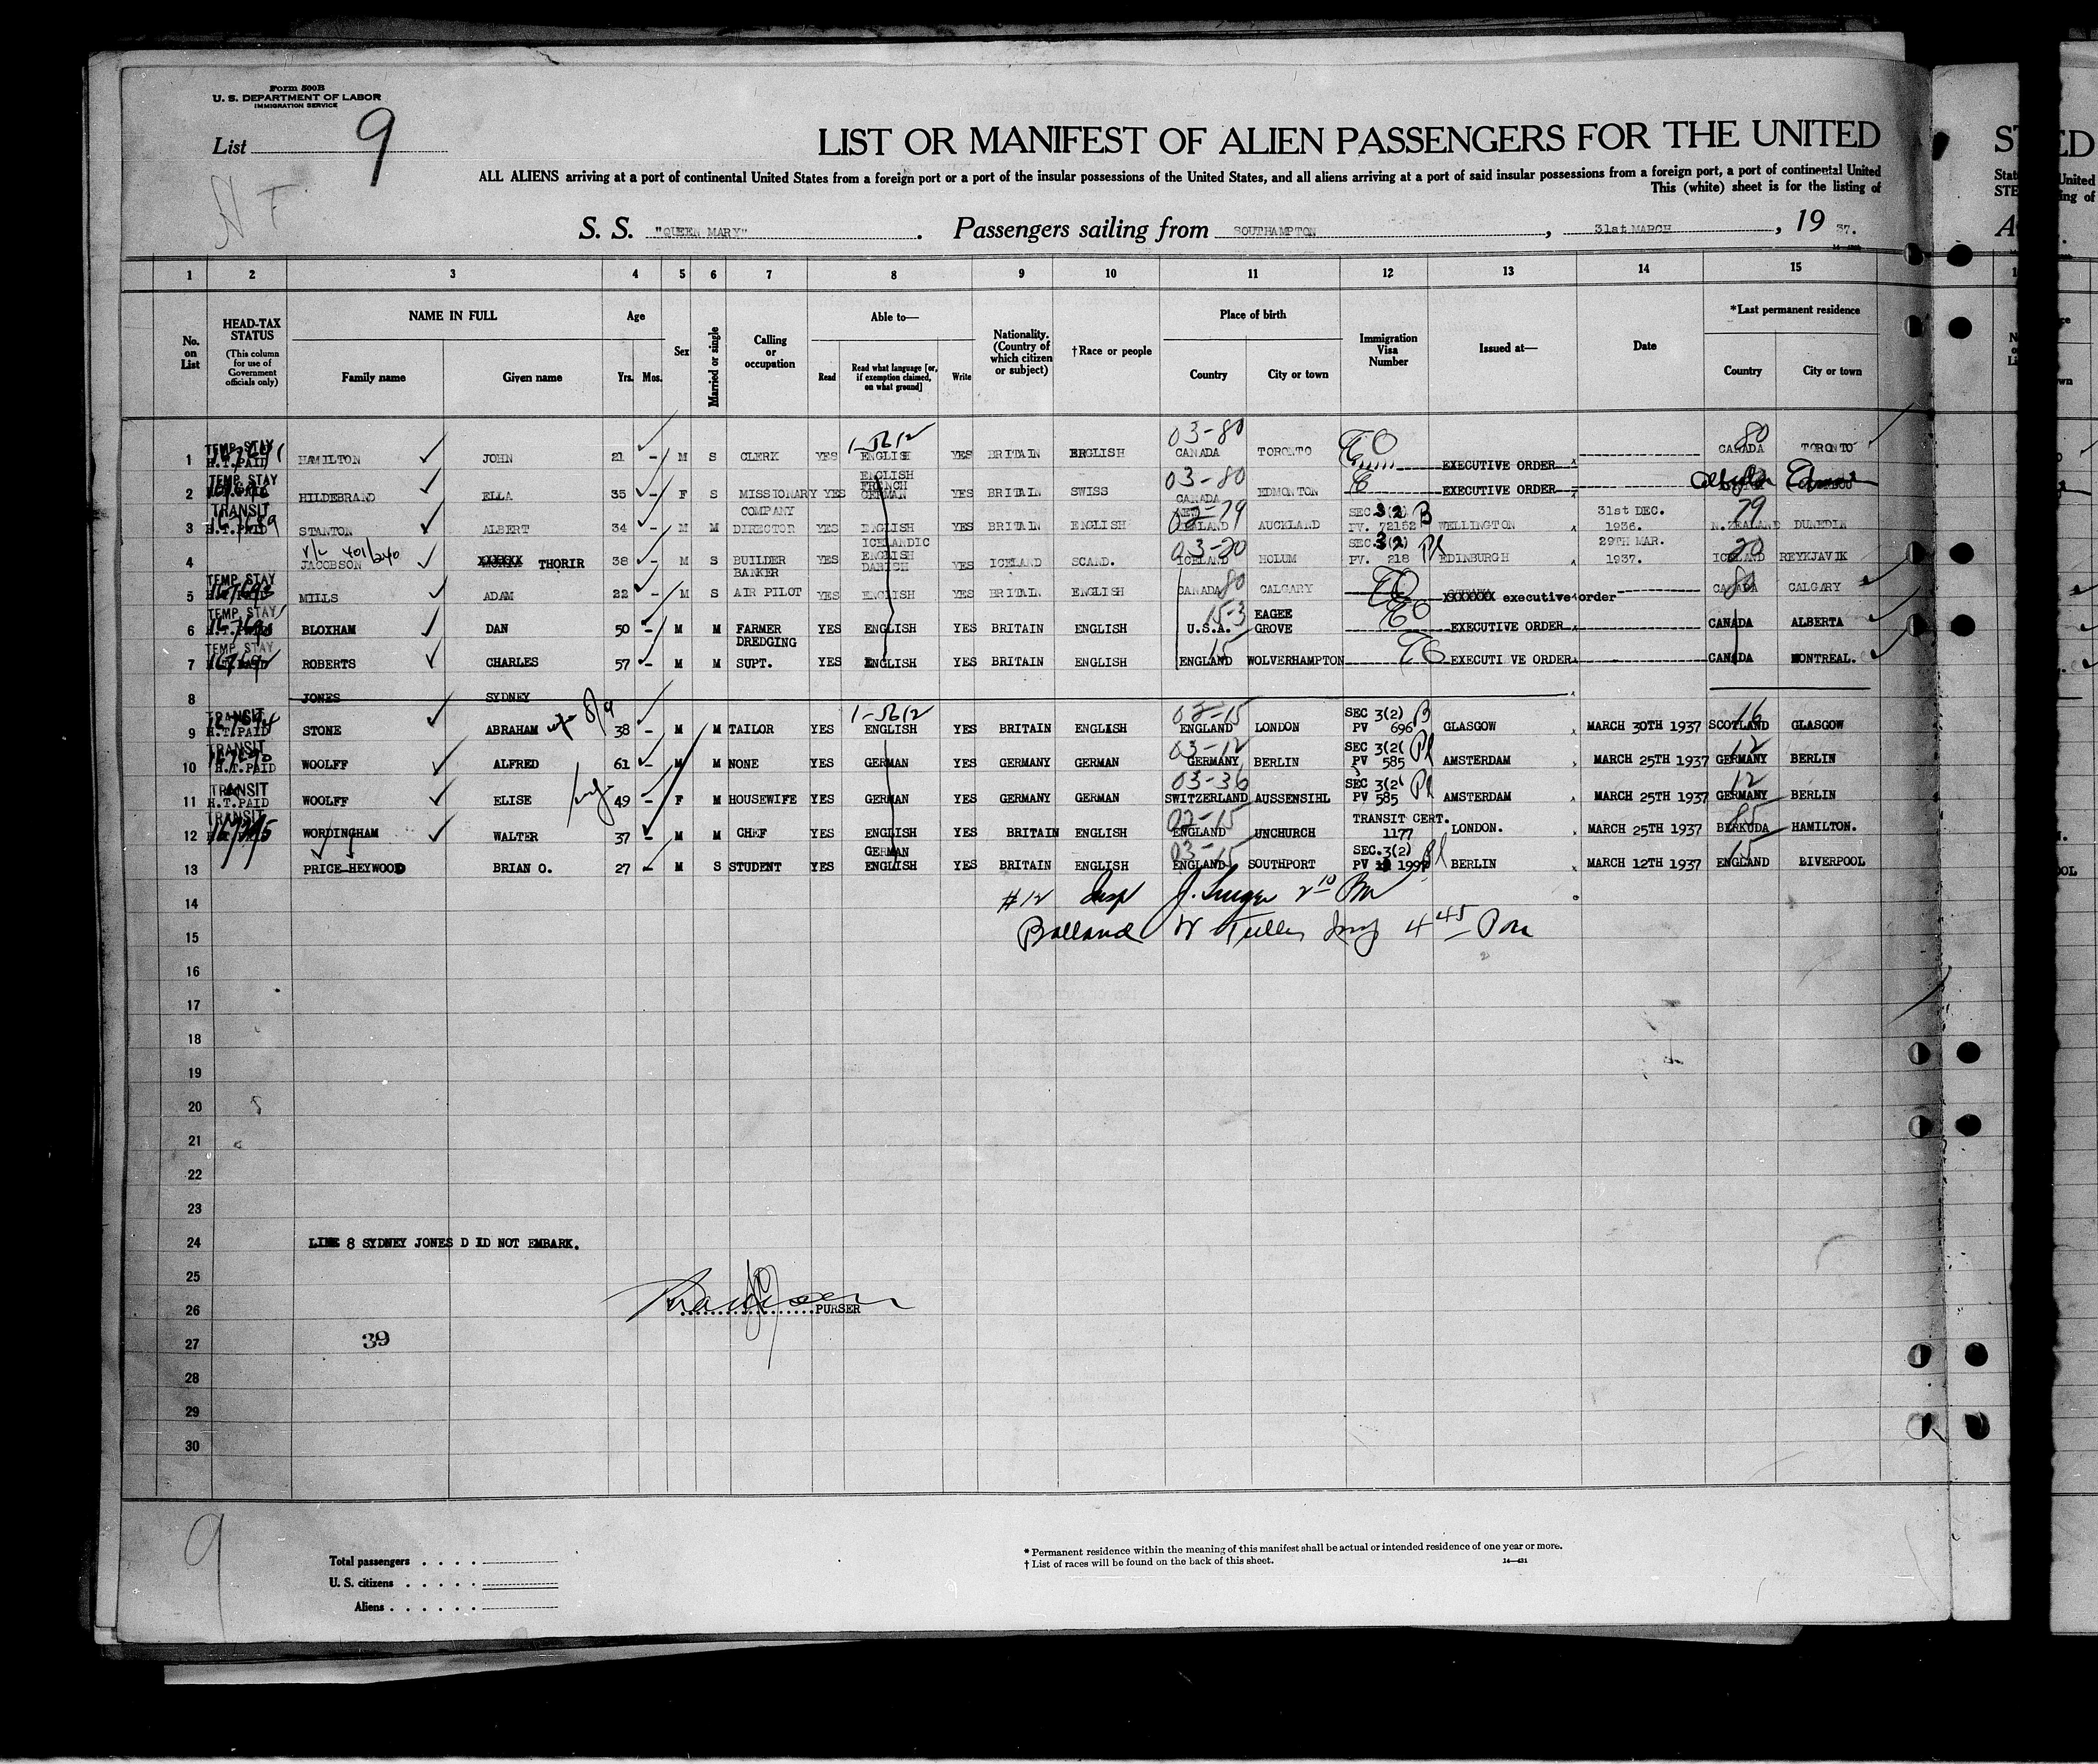 Form 500B
U. S. DEPARTMENT OF LABOR
IMMIGRATION SERVICE
List 9
LIST OR MANIFEST OF ALIEN PASSENGERS FOR THE UNITED
ALL ALIENS arriving at a port of continental United States from a foreign port or a port of the insular possessions of the United States, and all aliens arriving at a port of said insular possessions from a foreign port, a port of continental United
This (white) sheet is for the listing of
S. S. "QUEEN MARY". Passengers sailing from SOUTHAMPTON, 31st MARCH, 19 37.
1 2 3 4 5 6 7 8 9 10 11 12 13 14 15
No. on List
HEAD-TAX STATUS (This column for use of Government officials only)
NAME IN FULL Family name Given name
Age Yrs. Mos.
Sex
Married or single
Calling or occupation
Able to— Read Read what language [or, if exemption claimed, on what ground] Write
Nationality. (Country of which citizen or subject)
†Race or people
Place of birth Country City or town
Immigration Visa Number
Issued at—
Date
*Last permanent residence Country City or town
1 TEMP. STAY H.T. PAID HAMILTON JOHN 21 - M S CLERK YES ENGLISH YES BRITAIN ENGLISH 03-80 CANADA TORONTO EXECUTIVE ORDER 80 CANADA TORONTO
2 TEMP. STAY HILDEBRAND ELLA 35 - F S MISSIONARY YES ENGLISH FRENCH GERMAN YES BRITAIN SWISS 03-80 CANADA EDMONTON EXECUTIVE ORDER
3 TRANSIT H.T. PAID STANTON ALBERT 34 - M M COMPANY DIRECTOR YES ENGLISH YES BRITAIN ENGLISH NEW ZEALAND AUCKLAND SEC 3(2) PV. 72152 WELLINGTON 31st DEC. 1936. 79 N. ZEALAND DUNEDIN
4 401/240 JACOBSON XXXXXX THORIR 38 - M S BUILDER BANKER YES ICELANDIC ENGLISH DANISH YES ICELAND SCAND. 03-20 ICELAND HOLUM SEC. 3(2) PV. 218 EDINBURGH 29TH MAR. 1937. 20 ICELAND REYKJAVIK
5 TEMP. STAY MILLS ADAM 22 - M S AIR PILOT YES ENGLISH YES BRITAIN ENGLISH CANADA 80 CALGARY XXXXXXX executive order 80 CANADA CALGARY
6 TEMP. STAY BLOXHAM DAN 50 - M M FARMER YES ENGLISH YES BRITAIN ENGLISH 15-3 U.S.A. EAGEE GROVE EXECUTIVE ORDER CANADA ALBERTA
7 TEMP. STAY ROBERTS CHARLES 57 - M M DREDGING SUPT. YES ENGLISH YES BRITAIN ENGLISH 15 ENGLAND WOLVERHAMPTON EXECUTI VE ORDER CANADA MONTREAL.
8 JONES SYDNEY
9 TRANSIT H.T. PAID STONE ABRAHAM 38 - M M TAILOR YES ENGLISH YES BRITAIN ENGLISH 02-15 ENGLAND LONDON SEC 3(2) PV 696 GLASGOW MARCH 30TH 1937 16 SCOTLAND GLASGOW
10 TRANSIT H.T. PAID WOOLFF ALFRED 61 - M M NONE YES GERMAN YES GERMANY GERMAN 03-12 GERMANY BERLIN SEC 3(2( PV 585 AMSTERDAM MARCH 25TH 1937 12 GERMANY BERLIN
11 TRANSIT H.T. PAID WOOLFF ELISE 49 - F M HOUSEWIFE YES GERMAN YES GERMANY GERMAN 03-36 SWITZERLAND AUSSENSIHL SEC 3(2( PV 585 AMSTERDAM MARCH 25TH 1937 12 GERMANY BERLIN
12 TRANSIT WORDINGHAM WALTER 37 - M M CHEF YES ENGLISH YES BRITAIN ENGLISH 02-15 ENGLAND UNCHURCH TRANSIT CERT. 1177 LONDON. MARCH 25TH 1937 85 BERKUDA HAMILTON.
13 PRICE-HEYWOOD BRIAN O. 27 - M S STUDENT YES GERMAN ENGLISH YES BRITAIN ENGLISH 03-15 ENGLAND SOUTHPORT SEC.3(2) PV 1999 BERLIN MARCH 12TH 1937 15 ENGLAND BIVERPOOL
14 #12
15
16
17
18
19
20
21
22
23
24 LINE 8 SYDNEY JONES D ID NOT EMBARK.
25
26 PURSER
27 39
28
29
30
9
Total passengers
U. S. citizens
Aliens
* Permanent residence within the meaning of this manifest shall be actual or intended residence of one year or more.
† List of races will be found on the back of this sheet.
14—431